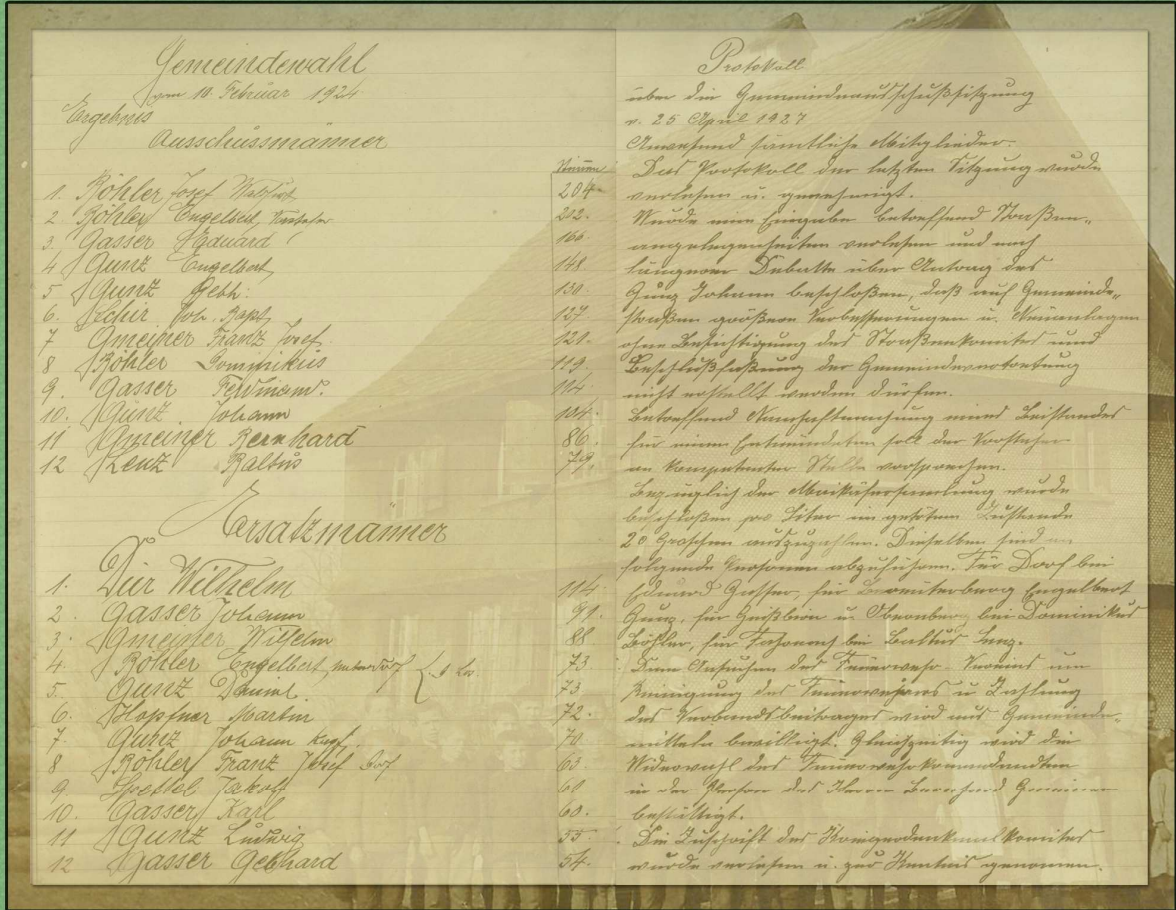 Gemeindewahl
am 10. Februar 1924
Ergebnis
Ausschussmänner
Stimmen
1. Böhler Josef 204
2 Böhler Engelbert, 202.
3. Gasser Eduard 166
4 Gunz Engelbert, 148.
5 Gunz Gebh. 130.
6. Feh. Bapt. 127.
7 Gmeiner Franz Josef. 121.
8 Böhler Dominikus 119.
9. Gasser Ferdinand. 114.
10. Gunz Johann 104.
11 Gmeiner Bernhard 86.
12 Lenz Baltus 79.
Ersatzmänner
1. Dür Wilhelm 114.
2. Gasser Johann 91.
3. Gmeiner Wilhelm 88.
4. Böhler Engelbert, 73.
5. Gunz Daniel 73
6. Hopfner Martin 72.
7. Gunz Johann 70
8 Böhler Franz Josef 63
9. Jakob 60
10. Gasser Karl 60.
11 Gunz Ludwig 55
12 Gasser Gebhard 54.
Protokoll
über die Gemeindeausschußsitzung
v. 25 April 1927
Anwesend sämtliche Mitglieder.
Das Protokoll der letzten Sitzung wurde
verlesen u. genehmigt.
Wurde eine Eingabe betreffend Straßen-
angelegenheiten verlesen und nach
längerer Debatte über Antrag des
Gunz Johann beschloßen, daß auf Gemeinde-
straßen größere Verbesserungen u. Neuanlagen
ohne Besichtigung des Straßenkomitees und
Beschlußfaßung der Gemeindevertretung
nicht erstellt werden dürfen.
Betreffend eines Beistandes
für einen Entmündeten soll der Vorsteher
an kompetenter Stelle vorsprechen.
Bezüglich der Maikäfersammlung wurde
beschloßen pro Liter im getöten Zustande
20 Groschen auszuzahlen. Dieselben sind an
folgende Personen abzuführen. Für Dorf bei
Eduard Gasser, für Engelbert
Gunz, für u. bei Dominikus
Böhler, für bei Baltus Lenz.
Dem Ansuchen des Feuerwehr-Vereins um
Reinigung des u Zahlung
des Verbandsbeitrages wird aus Gemeinde-
mitteln bewilligt. Gleichzeitig wird die
Widerwahl des Feuerwehrkommandanten
in der Person des Herrn Bernhard Gmeiner
bestättigt.
Die Zuschrift des Kriegerdenkmalkomites
wurde verlesen u. zur Kentnis genommen.